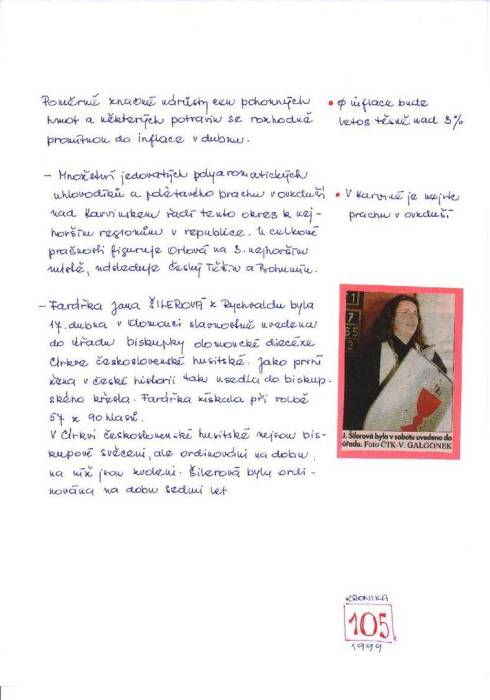 Poměrně značné nárůsty cen pohonných
hmot a některých potravin se rozhodně
promítnou do inflace v dubnu.
• ϕ inflace bude
letos těsně nad 3%
– Množství jedovatých polyaromatických
uhlovodíků a polétavého prachu v ovzduší
nad Karvinskem řadí tento okres k nej-
horším regionům v republice. U celkové
prašnosti figuruje Orlová na 3. nejhorším
místě, následuje Český Těšín a Bohumín.
• V Karviné je nejvíc
prachu v ovzduší
– Farářka Jana ŠILEROVÁ z Rychvaldu byla
17. dubna v Olomouci slavnostně uvedena
do úřadu biskupky olomoucké diecéze
Církve československé husitské. Jako první
žena v české historii tak usedla do biskup-
ského křesla. Farářka získala při volbě
57 z 90 hlasů.
V Církvi československé husitské nejsou bis-
kupové svěceni, ale ordinováni na dobu,
na níž jsou zvoleni. Šilerová byla ordi-
nována na dobu sedmi let
1
7
65
3
J. Šilerová byla v sobotu uvedena do
úřadu. Foto ČTK-V. GALGONEK
KRONIKA
105
1999